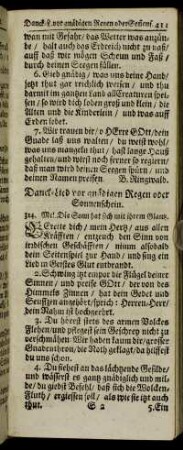 Danck-L. vor gnädigen Regen oder Sonnens. 421
wan mit Gefahr/ das Wetter was anzün-
de/ halt auch das Erdreich nicht zu naß/
auff daß wir mögen Scheun und Faß/
durch deinen Seegen füllen.
6. Gieb gnädig/ was uns deine Hand/
jetzt
so wird dich loben groß und klein/ die
Alten und die Kinderlein/ und was auff
Erden lebet.
7. Wir trauen dir/ o HErre GOtt/ dein
Güte laß uns walten/ du weist wohl/
was uns mangeln thut/ halt lange Hauß
gehalten/ wirst noch ferner so regieren/
daß man wird deinen Seegen spüren/ und
deinen Namen preisen. B. Ringwald.
Danck-Lied vor gnädigen Regen oder
Sonnenschein.
324. Mel. Die Sonn hat sich mit ihrem Glantz.
Ereite dich/ mein Hertz/ aus allen
Kräfften/ entzeuch den Sinn von
irrdischen Geschäfften/ nimm alsobald
dein Seitenspiel zur Hand/ und sing ein
Lied in Geistes Glut entbrandt.
2. Schwing jetzt empor die Flügel deiner
Sinnen/ und preise GOtt/ der von des
Himmels Zinnen/ hat dein Gebet und
Seufftzen angehört/ sprich: Herren-Herr/
dein Nahm ist hochgeehrt.
3. Du hörest stets des armen Volckes
Flehen/ und pflegest sein Geschrey nicht zu
verschmähen. Wir haben kaum dir/ grosser
Gnadenthron/ die Noth geklagt/ da hilffest
du uns schon.
4. Du siehest an das lächtzende Gefilde/
und wässerst es gantz gnädiglich und mil-
de/ du giebst Befehl/ daß sich die Wolcken-
Fluth/ ergiessen soll/ als wie sie jetzt auch
thut. S 2 5. Ein